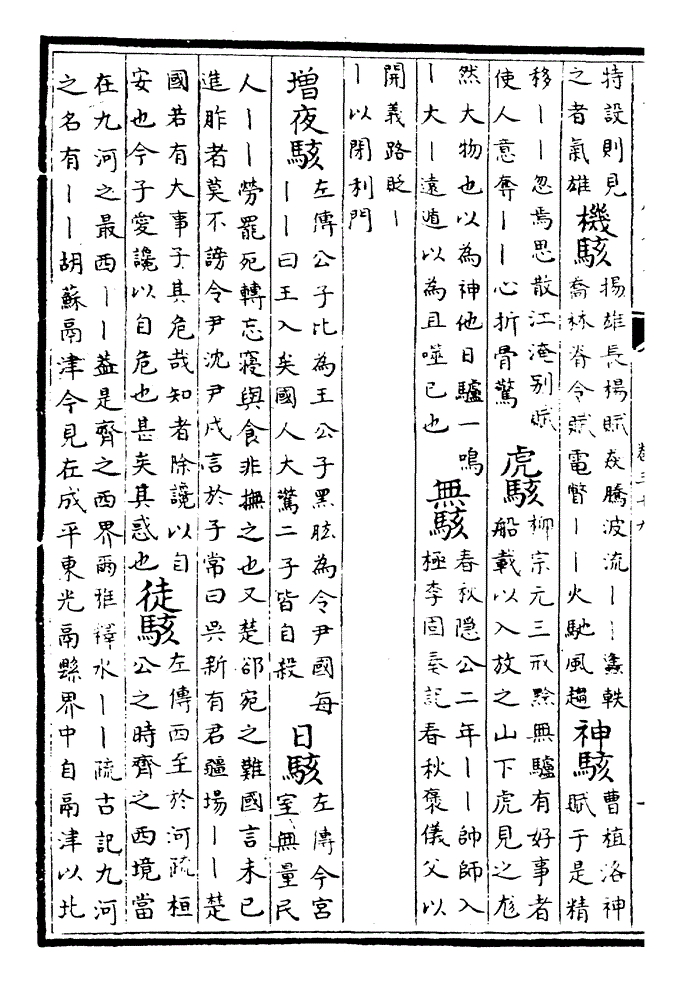 特設則見
之者氣雄
機駭
揚雄長楊賦猋騰波流丨丨蠭軼
喬琳脊令賦電瞥丨丨火馳風趨
神駭
曹植洛神
賦于是精
移丨丨忽焉思散江淹别賦
使人意奪丨丨心折骨驚
虎駭
柳宗元三戒黔無驢有好事者
船載以入放之山下虎見之尨
然大物也以為神他日驢一鳴
丨大丨遠遁以為且噬已也
無駭
春秋隐公二年丨丨帥師入
極李固奏記春秋褒儀父以
開義路貶丨
丨以閉利門
增夜駭
左傳公子比為王公子黑肱為令尹國每
丨丨曰王入矣國人大驚二子皆自殺
日駭
左傳今宫
室無量民
人丨丨勞罷死轉忘寢與食非撫之也又楚郤宛之難國言未已
進胙者莫不謗令尹沈尹戌言於子常曰吳新有君疆場丨丨楚
國若有大事子其危哉知者除讒以自
安也今子愛讒以自危也甚矣其惑也
徒駭
左傳西至於河疏桓
公之時齊之西境當
在九河之最西丨丨葢是齊之西界爾雅釋水丨丨疏古記九河
之名有丨丨胡蘇鬲津今見在成平東光鬲縣界中自鬲津以北